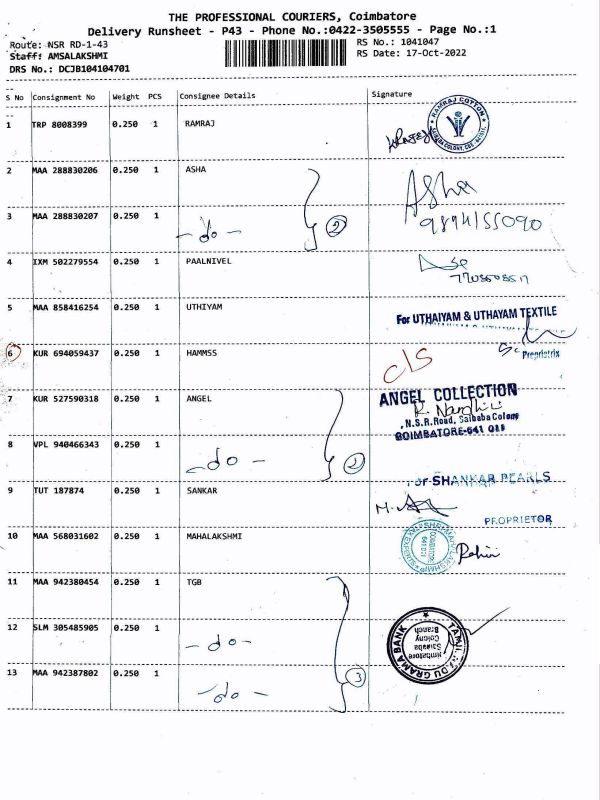 THE PROFESSIONAL COURIERS, Coimbatore
Delivery Runsheet - P43 - Phone No.:0422-3505555 - Page No.:1
Route: NSR RD-1-43 RS No.: 1041047
Staff: AMSALAKSHMI RS Date: 17-Oct-2022
DRS No.: DCJB104104701
S No Consignment No Weight PCS Consignee Details Signature
1 TRP 8008399 0.250 1 RAMRAJ
RAMRAJ COTTON
2 MAA 288830206 0.250 1 ASHA Asha
3 MAA 288830207 0.250 1 - do - 2 9894155090
4 IXM 502279554 0.250 1 PAALNIVEL
5 MAA 858416254 0.250 1 UTHIYAM For UTHAIYAM & UTHAYAM TEXTILE
Proprietrix
6 KUR 694059437 0.250 1 HAMMSS C/S
7 KUR 527590318 0.250 1 ANGEL ANGEL COLLECTION
R. Nandhini
N.S.R.Road, Saibaba Colony
COIMBATORE-641 011
8 VPL 940466343 0.250 1 - do - 2
9 TUT 187874 0.250 1 SANKAR For SHANKAR PEARLS
PROPRIETOR
10 MAA 568031602 0.250 1 MAHALAKSHMI
11 MAA 942380454 0.250 1 TGB
12 SLM 305485905 0.250 1 - do - TAMIL NADU GRAMA BANK
Saibaba
Colony
Branch
13 MAA 942387802 0.250 1 - do - 3